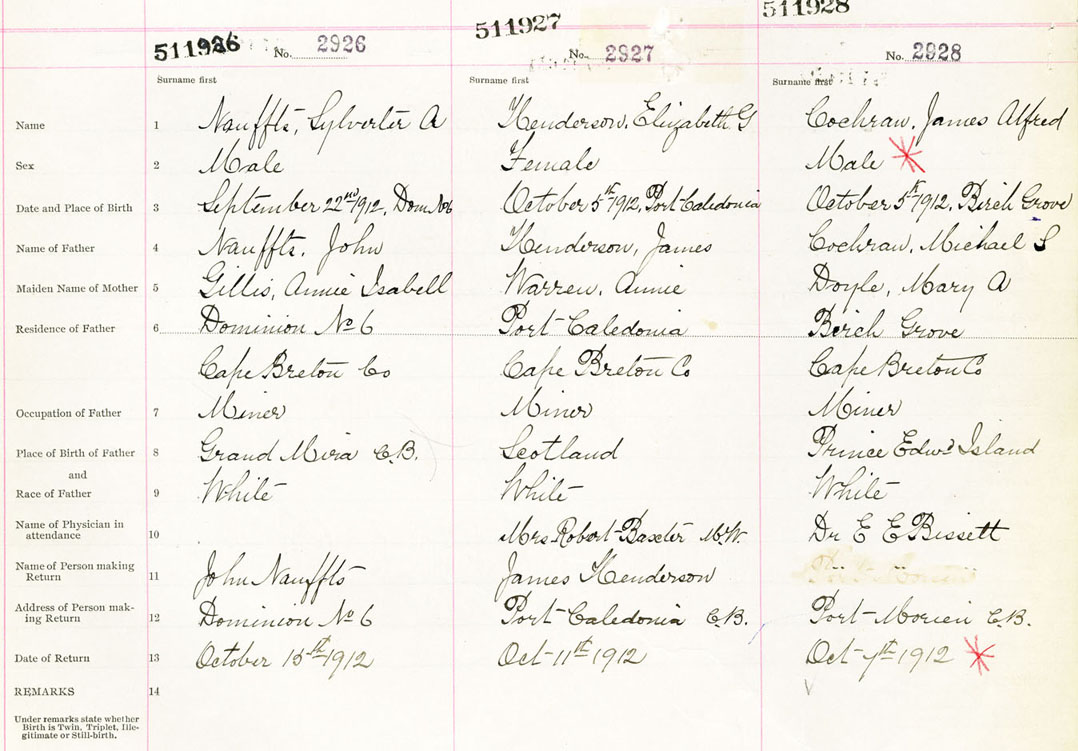 511926 No. 2926 511927 No. 2927 511928 No. 2928
Surname first Surname first Surname first
Name 1 Nauffts, Sylverter A Henderson, Elizabeth G Cochran, James Alfred
Sex 2 Male Female Male
Date and Place of Birth 3 September 22nd 1912, Dom No 6 October 5th 1912, Port Caledonia October 5th 1912, Birch Grove
Name of Father 4 Nauffts, John Henderson, James Cochran, Michael S
Maiden Name of Mother 5 Gillis, Annie Isabell Warren, Annie Doyle, Mary A
Residence of Father 6 Dominion No 6 Port Caledonia Birch Grove
Cape Breton Co Cape Breton Co Cape Breton Co
Occupation of Father 7 Miner Miner Miner
Place of Birth of Father 8 Grand Mira C.B. Scotland Prince Edwd Island
and
Race of Father 9 White White White
Name of Physician in
attendance 10 Mrs Robert Baxter M.W. Dr E E Bissett
Name of Person making
Return 11 John Nauffts James Henderson " "
Address of Person mak-
ing Return 12 Dominion No 6 Port Caledonia C.B. Port Morien C.B.
Date of Return 13 October 15th 1912 Oct 11th 1912 Oct 7th 1912
REMARKS 14
Under remarks state whether
Birth is Twin, Triplet, Ille-
gitimate or Still-birth.